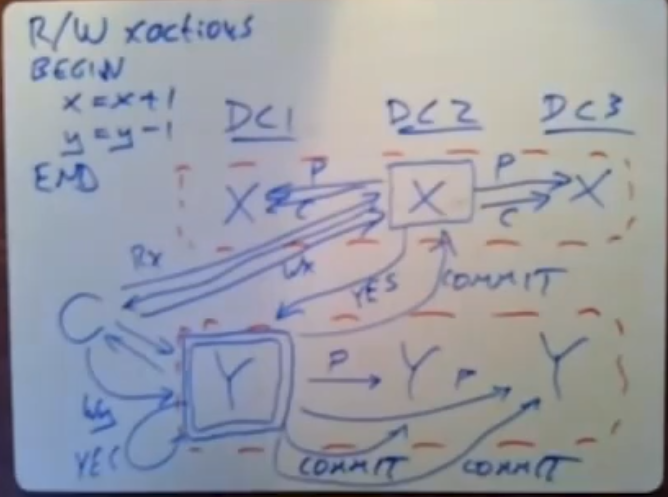 R/W xactions
BEGIN
x = x+1
y = y-1
END
DC1 DC2 DC3
P P
X X X
C C
Rx
Wx
YES COMMIT
C
Y P Y P Y
Wy
YES
COMMIT COMMIT